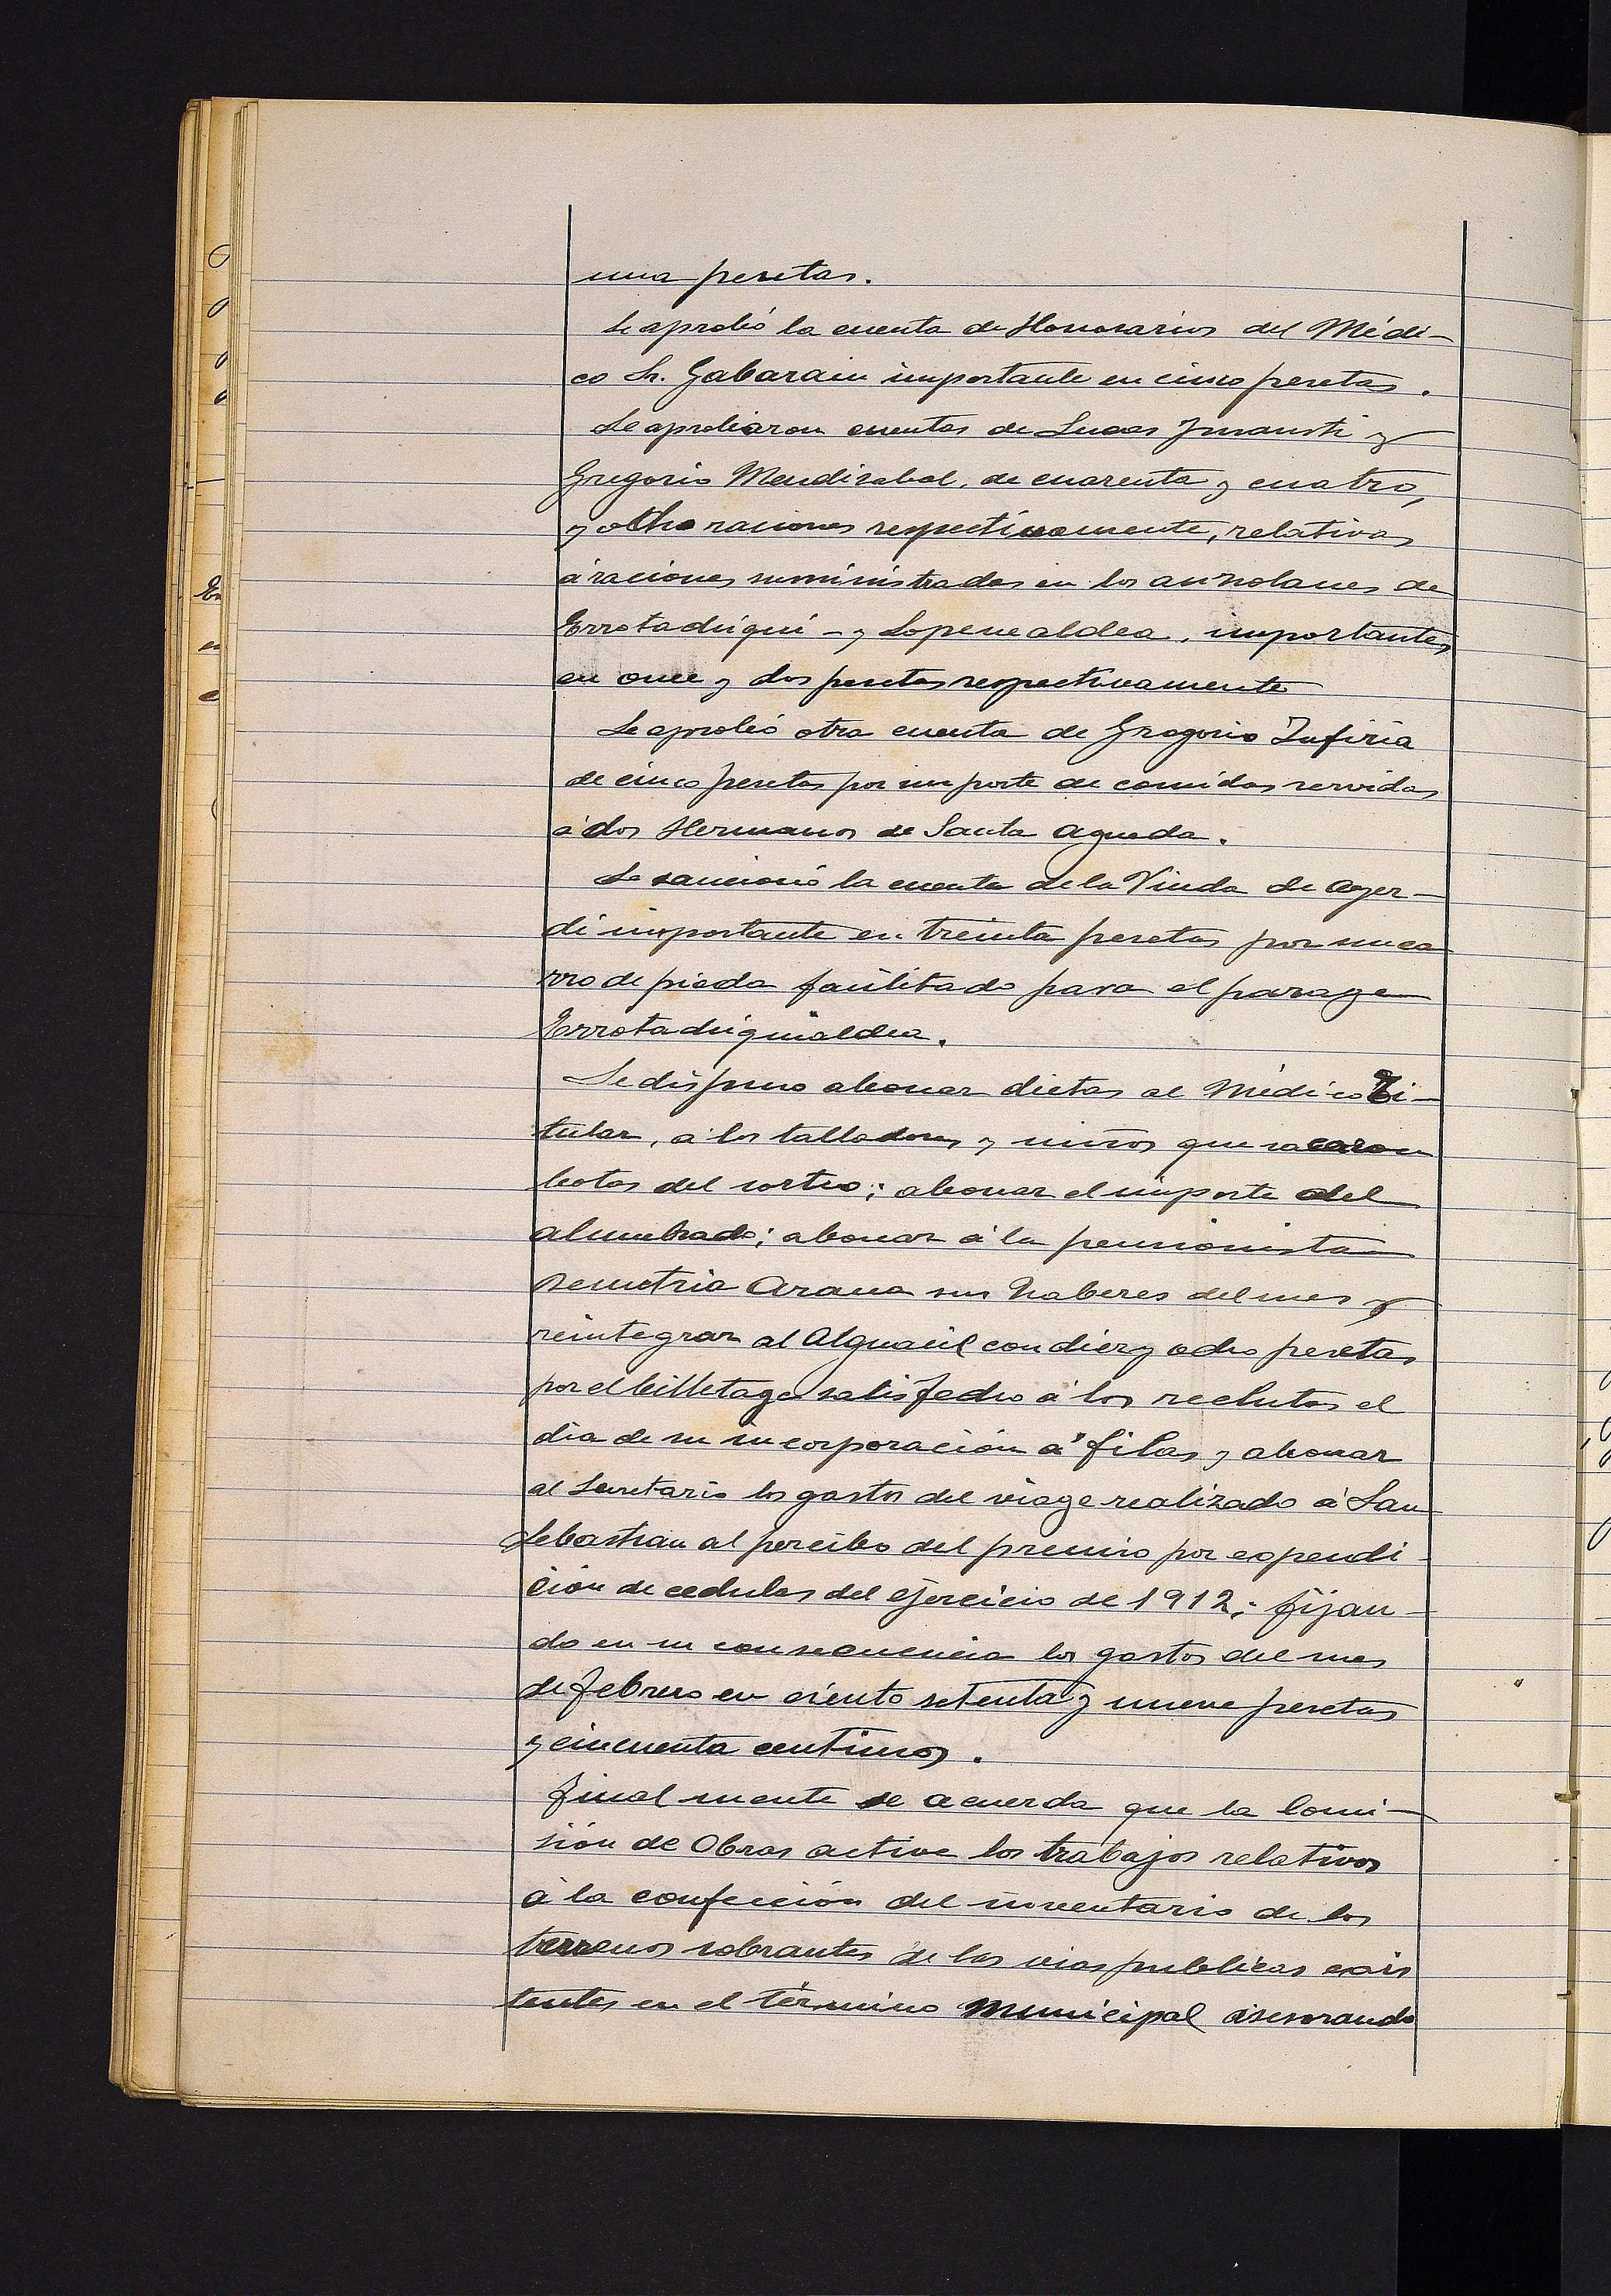 una pesetas.
Se aprobó la cuenta de Honorarios del Médi-
co Sr. Gabarain importante en cinco pesetas.
Se aprobaron cuentas de Lucas y
Gregorio Mendizabal, de cuarenta y cuatro,
y ocho raciones respectivamente, relativas
á raciones suministradas en los auzolanes de
Errotachiqui - y Lopenealdea, importantes
en once y dos pesetas respectivamente
Se aprobó otra cuenta de Gregorio
de cinco pesetas por importe de comidas servidas
á dos Hermanos de Santa Agueda.
Se sancionó la cuenta de la Viuda de Ager-
di importante en treinta pesetas por un ca
rro de pieda facilitado para el parage
Errotachiquialdea.
Se dispuso abonar dietas al Médico Ti-
tular, á los talladores y niños que sacaron
bolas del sorteo; abonar el importe del
alumbrado; abonar á la pensionista
Demetria Arana sus haberes del mes y
reintegrar al Alguacil con diez y ocho pesetas
por el billetage satisfecho á los reclutas el
dia de su incorporación á filas y abonar
al Secretario los gastos del viage realizado á San
Sebastian al percibo del premio por expendi-
ción de cedulas del ejercicio de 1912; fijan-
do en su consecuencia los gastos del mes
de febrero en ciento setenta y nueve pesetas
y cincuenta centimos.
Finalmente se acuerda que la Comi-
sión de Obras active los trabajos relativos
á la confección del inventario de los
terrenos sobrantes de las vias publicas exis
tentes en el término Municipal asesorando